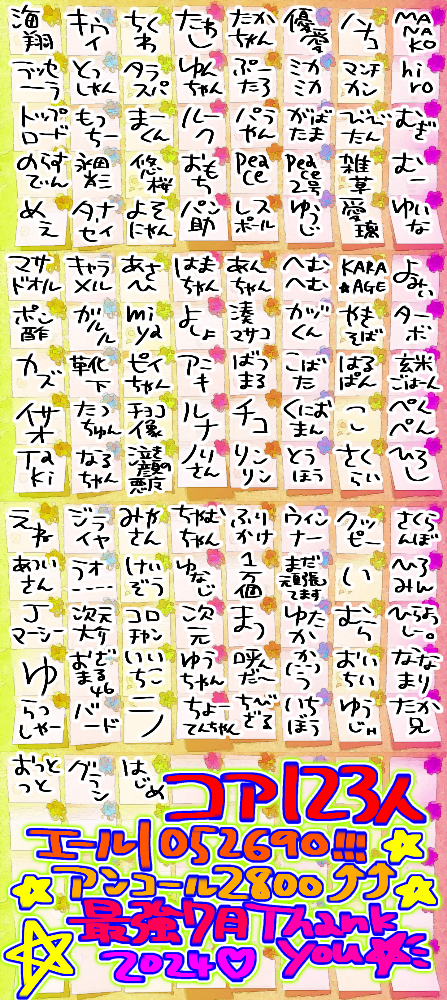 海翔 キウイ ちくわ たわし たかちゃん 優愛 ハナコ MANAKO
デッセーラ とっしゃん タラスパ ゆんちゃん ぷーたろ ミカミカ マンチカン hiro
トップロード もっちー まーくん ルーク パラやん がばたま びびたん むぎ
のらすでぃん 永田英二 悠桜 おもち Peace Peace2号 雑草 むー
めぇ タナセイ よそにゃん パン助 レスポール ゆうじ 愛璃 ゆいな
マサドオル キャラメル あさひ はまちゃん あんちゃん へむへむ KARA★AGE よみぃ
ポン酢 ガルル miya よしょ 湊マサコ カヅくん やきそば ターボ
カズ 靴下 ピイちゃん アニキ ばつまる こばた はるぱん 玄米ごはーん
イサオ たっちゅん チョコ像 ルナ チコ くにおまん っこ ぺくぺん
Taki なるちゃん 泣き顔の悪魔 ノリさん リンリン とうほう さくらい ひろし
えね ジライヤ みかさん ちゃむちゃん ふりかけ ウィンナー クッピー さくらんぼ
あついさん ラオーーーー けいぞう ゆなじ 1万個 まだ頑張ってます い ひろみん
Jマーシー 次元大介 コロチャン 次元 まつ ゆたか むら ひらょしー。
ゆ おざまる46 いいちこ ゆうちゃん 呼んだ〜 かつこう おいちい ななまり
らっしゃー バード ニノ ちょーてんちゃん ちびざる いちぼう ゆうじH たか兄
おっとっと グラン はじめ
コア123人
エール1052690!!!
アンコール2800⤴⤴
最強7月Thank you
2024♡